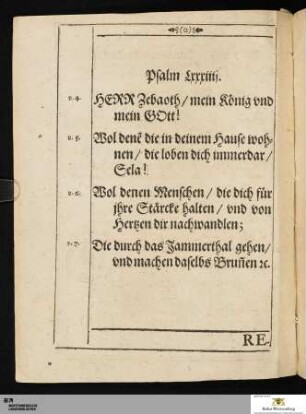 Psalm Lxxxiiij.
v. 4. HERR Zebaoth / mein König vnd
mein GOtt!
v. 5. Wol denẽ die in deinem Hause woh-
nen / die loben dich immerdar /
Sela!
v. 6. Wol denen Menschen / die dich für
jhre Stärcke halten / vnd von
Hertzen dir nachwandlen;
v. 7. Die durch das Jammerthal gehen /
vnd machen daselbs Brun̄en ꝛc.
RE.